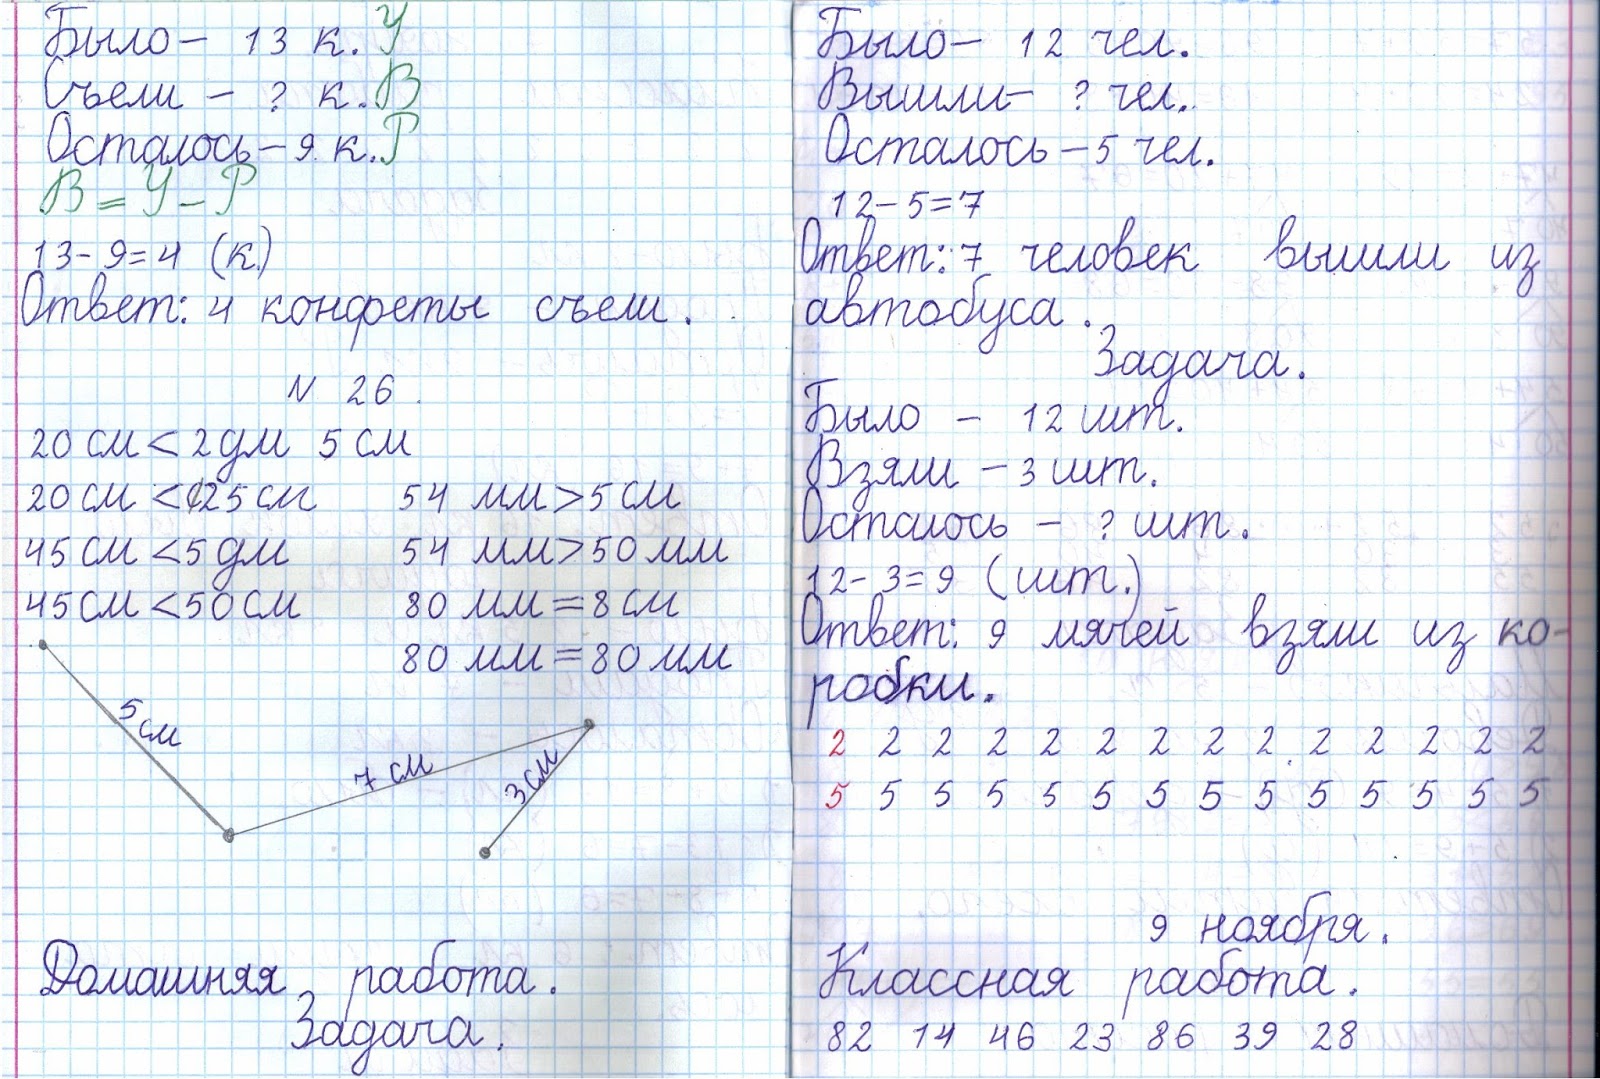 Было – 13 к. У
Съели – ? к. В
Осталось – 9 к. Р
В = У – Р
13 - 9 = 4 (к)
Ответ: 4 конфеты съели.
N 26.
20 см < 2 дм 5 см
20 см < 25 см
45 см < 5 дм
45 см < 50 см
54 мм > 5 см
54 мм > 50 мм
80 мм = 8 см
80 мм = 80 мм
5 см
7 см
3 см
Домашняя работа.
Задача.
Было – 12 чел.
Вышли – ? чел.
Осталось – 5 чел.
12 – 5 = 7
Ответ: 7 человек вышли из
автобуса.
Задача.
Было – 12 шт.
Взяли – 3 шт.
Осталось – ? шт.
12 - 3 = 9 (шт.)
Ответ: 9 мячей взяли из ко-
робки.
2 2 2 2 2 2 2 2 2 2 2 2 2 2
5 5 5 5 5 5 5 5 5 5 5 5 5 5
9 ноября.
Классная работа.
82 14 46 23 86 39 28